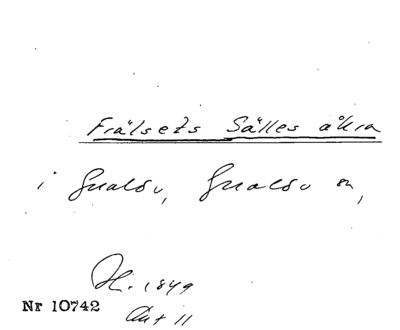 Frälsets Sälles åkra
i Gualöv, Gualöv sn,
H. 1849
Akt 11
Nr 10742